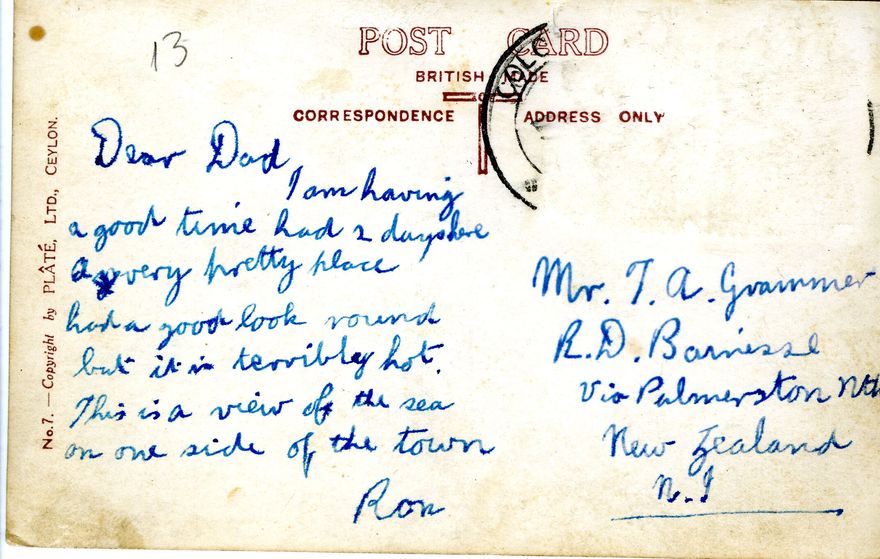 13
POST CARD
BRITISH MADE
CORRESPONDENCE ADDRESS ONLY
No.7. — Copyright by PLÂTÉ, LTD., CEYLON.
Dear Dad,
I am having
a good time had 2 days here
a very pretty place
had a good look round
but it is terribly hot.
This is a view of the sea
on one side of the town
Ron
COLO
Mr. T. A. Grammer
R.D. Barnesse
Via Palmerston Nth
New Zealand
N.I